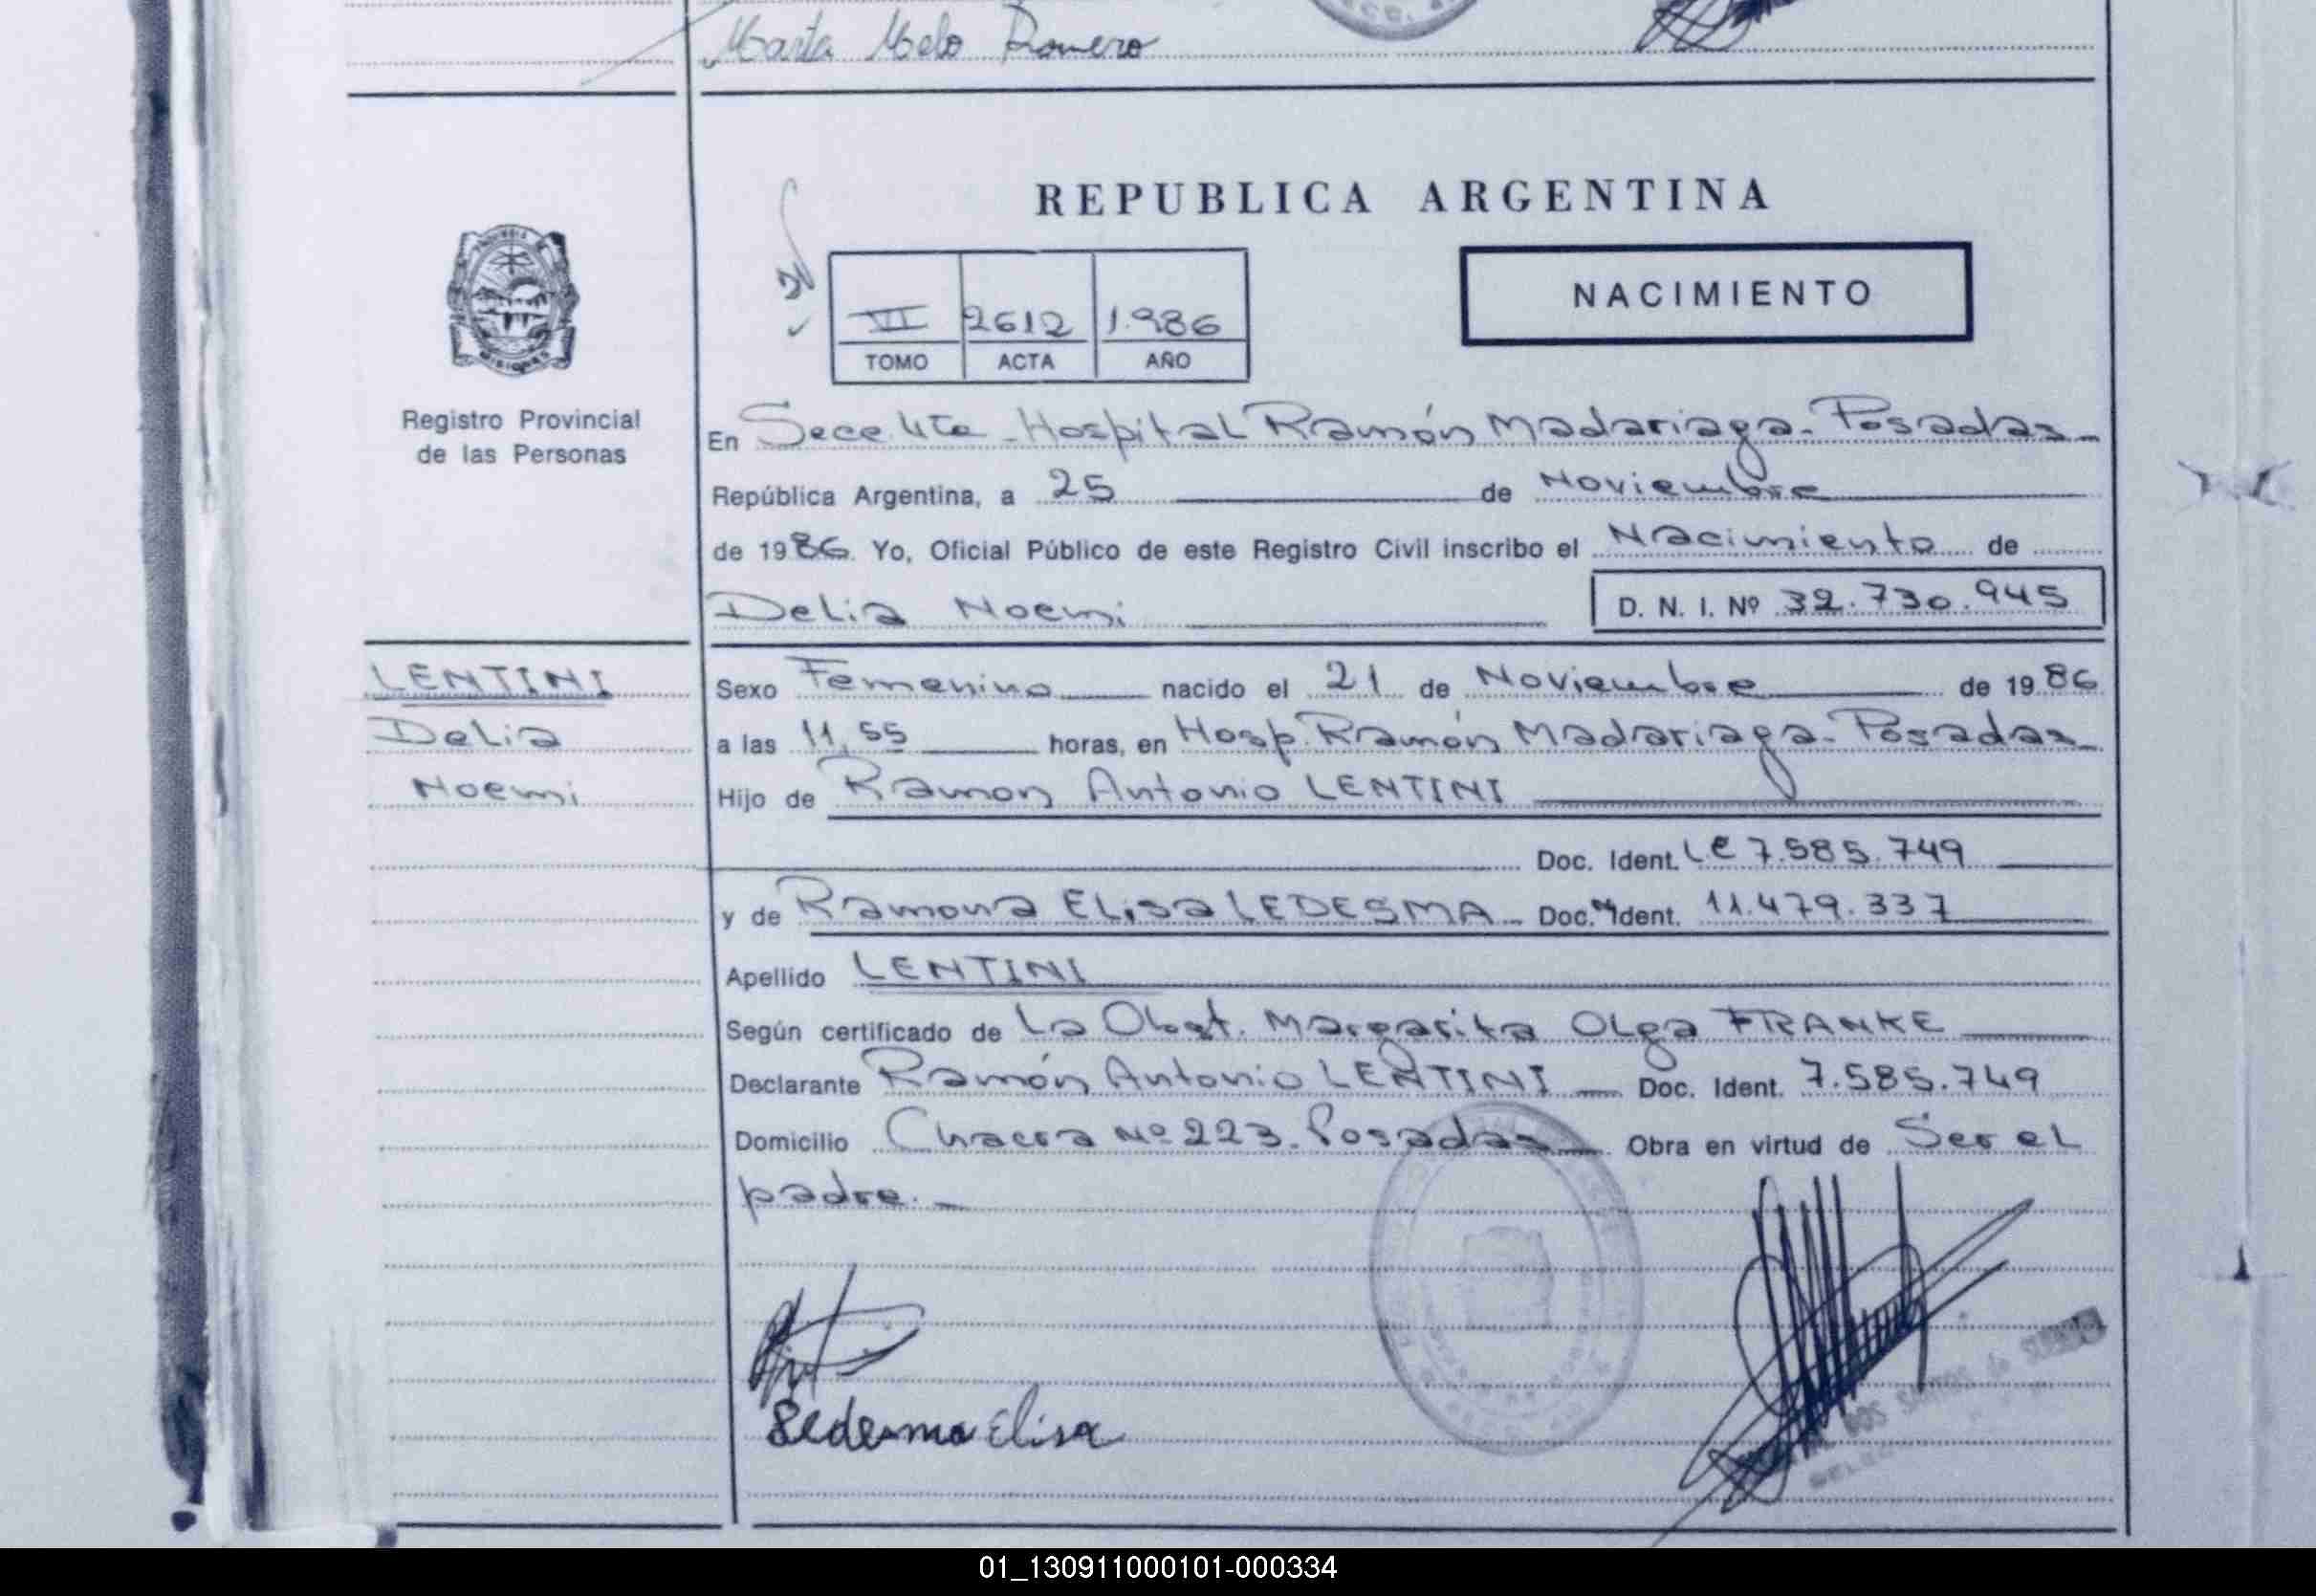 Marta Melo Romero
REPUBLICA ARGENTINA
NACIMIENTO
VI 2612 1.986
TOMO ACTA AÑO
MISIONES
Registro Provincial
de las Personas
En Secc. 4ta - Hospital Ramón Madariaga - Posadas
República Argentina, a 25 de Noviembre
de 1986. Yo, Oficial Público de este Registro Civil inscribo el Nacimiento de
Delia Noemi D. N. I. Nº 32.730.945
LENTINI
Delia
Noemi
Sexo Femenino nacido el 21 de Noviembre de 1986
a las 11,55 horas, en Hosp. Ramón Madariaga - Posadas
Hijo de Ramon Antonio LENTINI
Doc. Ident. L.E 7.585.749
y de Ramona Elisa LEDESMA - Doc. Ident. 11.479.337
Apellido LENTINI
Según certificado de La Obst. Margarita Olga FRANKE
Declarante Ramón Antonio LENTINI - Doc. Ident. 7.585.749
Domicilio Chacra Nº 223. Posadas Obra en virtud de Ser el
padre. -
Ledesma Elisa
DOS SANTOS de
01_130911000101-000334